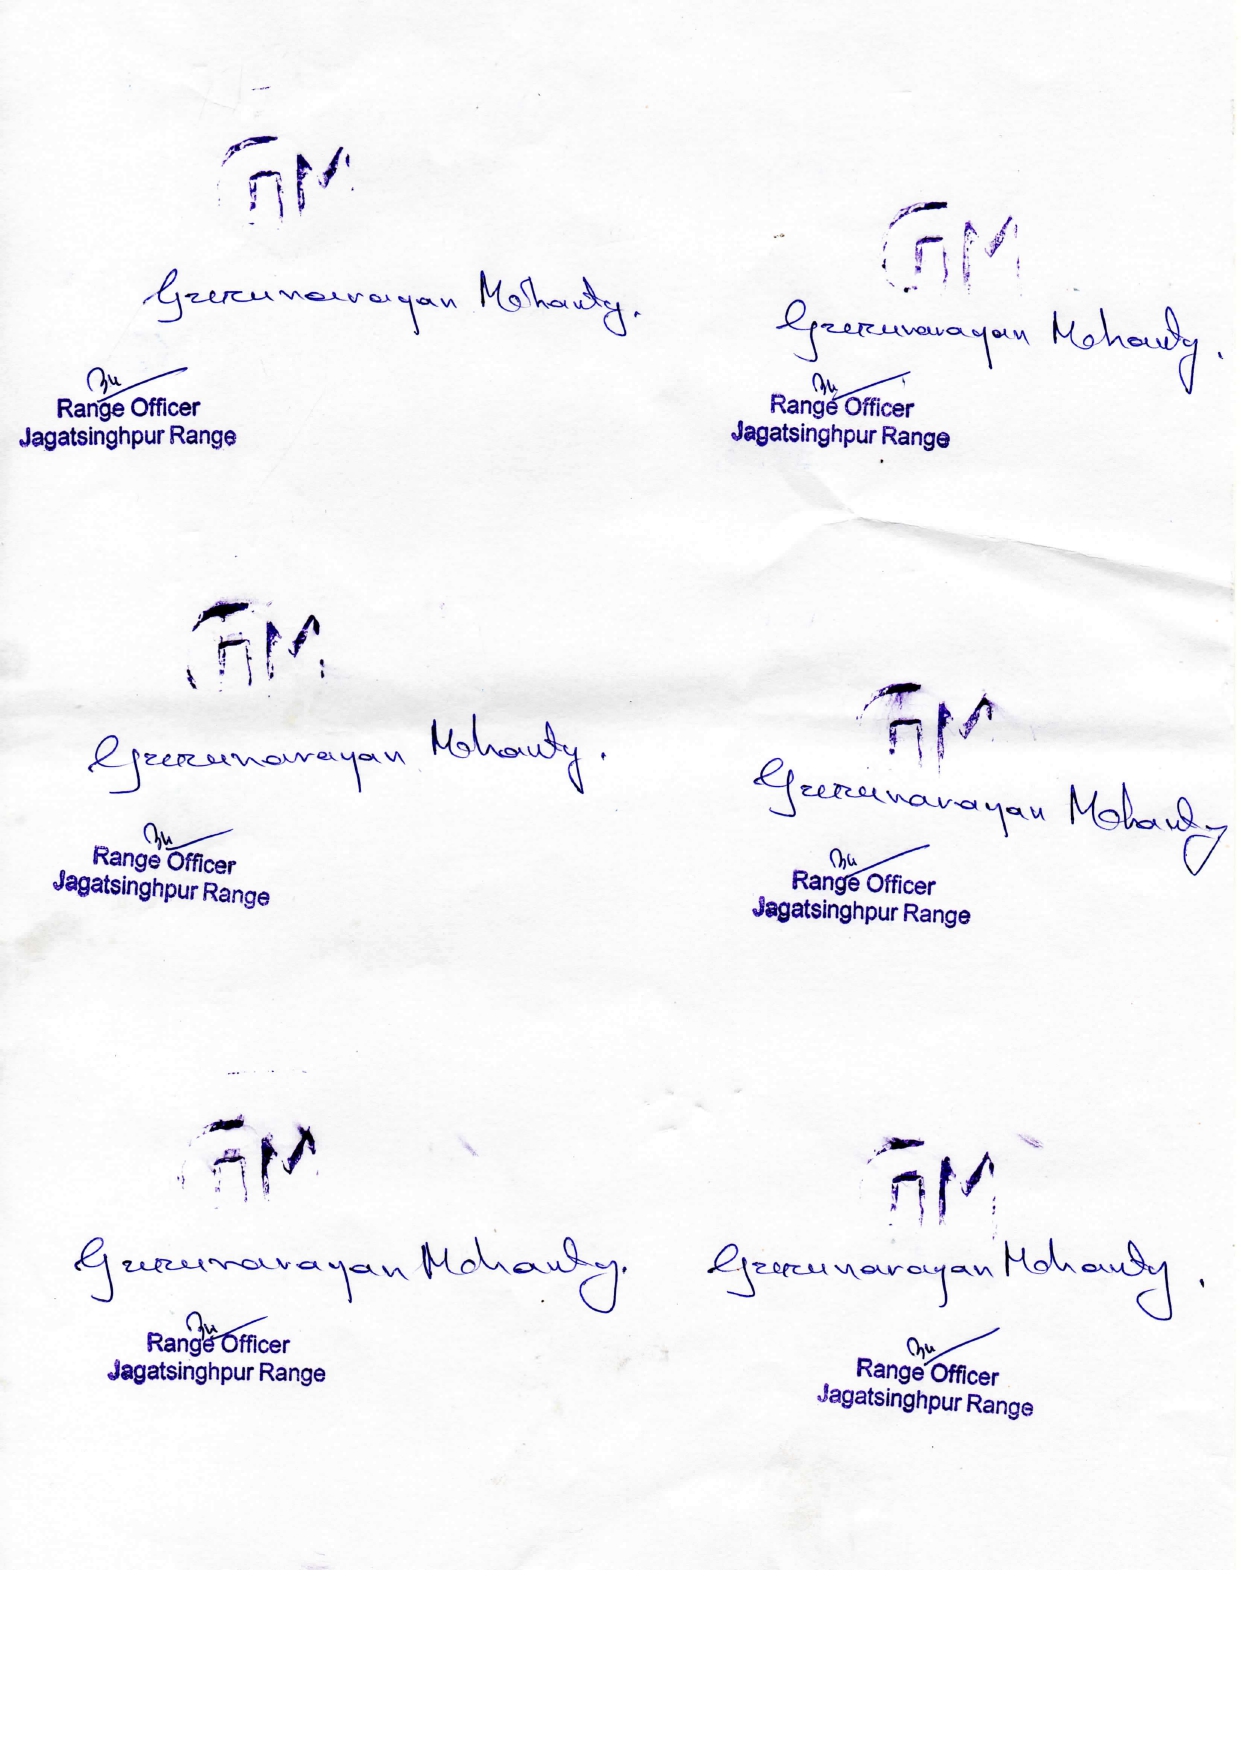 GM
Gurunarayan Mohanty.
Range Officer
Jagatsinghpur Range
GM
Gurunarayan Mohanty.
Range Officer
Jagatsinghpur Range
GM
Gurunarayan Mohanty.
Range Officer
Jagatsinghpur Range
GM
Gurunarayan Mohanty
Range Officer
Jagatsinghpur Range
GM
Gurunarayan Mohanty.
Range Officer
Jagatsinghpur Range
GM
Gurunarayan Mohanty.
Range Officer
Jagatsinghpur Range